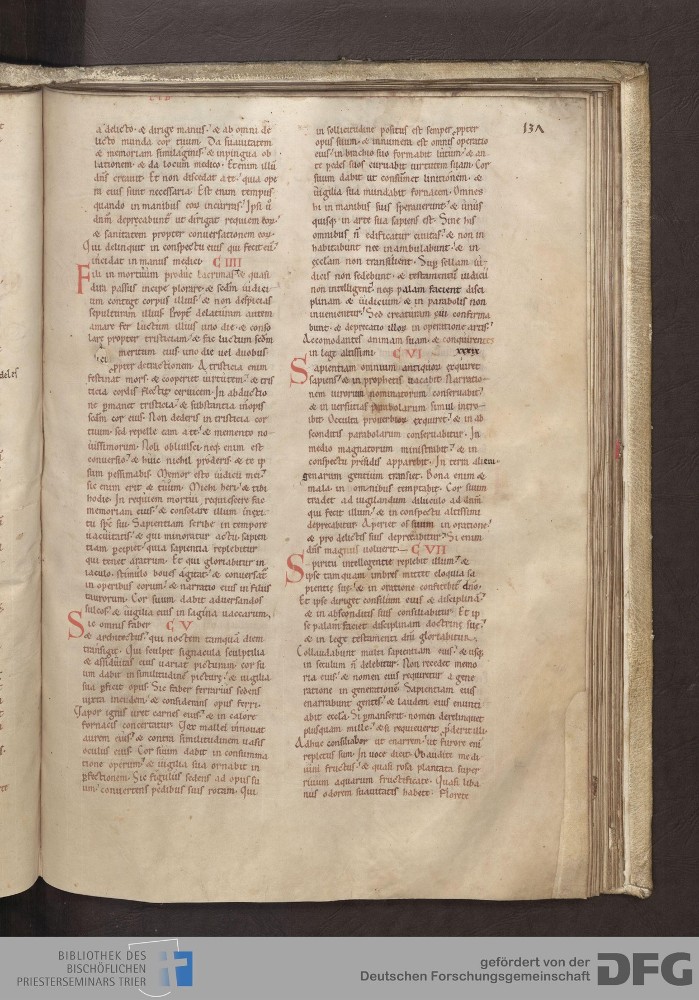 131
a delicto· & dirige manus· & ab omni de
licto munda cor tuum· Da suauitatem
& memoriam similaginis· & inpingua ob
lationem· & da locum medico· Etenim illū
dn̄s creauit· Et non discedat a te· quia ope
ra eius sunt necessaria· Est enim tempus
quando in manibus eoꝝ incurris· Ipsi ū
dn̄m deprecabunt̄ ut dirigat requiem eoꝝ·
& sanitatem propter conuersationem eoꝝ·
Qui delinquit in conspectu eius qui fecit eū·
incidat in manus medici· C IIII
Fili in mortuum produc lacrimas· & quasi
dira passus incipe plorare· & scd̄m iudici
um contege corpus illius· & non despicias
sepulturam illius· Propt̄ delaturam autem
amare fer luctum illius uno die· & conso
lare propter tristiciam· & fac luctum scd̄m
meritum eius uno die uel duobus·
ꝓpter detractionem· A tristicia enim
festinat mors· & cooperiet uirtutem· & tris
ticia cordis flectit ceruicem· In abductio
ne ꝑmanet tristicia· & substantia inopis
scd̄m cor eius· Non dederis in tristicia cor
tuum· sed repelle eam a te· & memento no
uissimorum· Noli obliuisci· neq; enim est
conuersio· & huic nichil proderis· & te ip
sum pessimabis· Memor esto iudicii mei·
sic enim erit & tuum· Michi heri· & tibi
hodie· In requiem mortui· requiescere fac
memoriam eius· & consolare illum in exi
tu sp̄c sui· Sapientiam scribe in tempore
uacuitatis· & qui minoratur actu· sapien
tiam ꝑcipiet· quia sapientia replebitur
qui tenet aratrum· Et qui gloriabitur in
iaculo· stimulo boues agitat· & conuersat̄
in operibus eorum· & narratio eius in filiis
taurorum· Cor suum dabit aduersandos
sulcos· & uigilia eius in sagina uaccarum·
Sic omnis faber C V
& architectus· qui noctem tamquā diem
transigit· Qui sculpit signacula sculptilia
& assiduitas eius uariat picturam· cor su
um dabit in similitudinē picturę· & uigilia
sua ꝑficit opus· Sic faber ferrarius sedens
iuxta incudem· & considerans opus ferri·
Vapor ignis uret carnes eius· & in calore
fornacis concertatur· Vox mallei innouat
aurem eius· & contra similitudinem uasis
oculus eius· Cor suum dabit in consumma
tione operum· & uigilia sua ornabit in
ꝑfectionem· Sic figulus sedens ad opus su
um· conuertens pedibus suis rotam· Qui
in sollicitudine positus est semper ꝓpter
opus suum· & innumera est omnis operatio
eius· in brachio suo formabit lutum· & an
te pedes suos curuabit uirtutem suam· Cor
suum dabit ut consūmet linitionem· &
uigilia sua mundabit fornacem· Omnes
hi in manibus suis sperauerunt· & unus
quisq; in arte sua sapiens est· Sine his
omnibus n̄ edificatur ciuitas· & non in
habitabunt nec inambulabunt· & in
ęcclam non transilient· Sup̄ sellam iu
dicis non sedebunt· & testamentū iudicii
non intelligent· neq; palam facient disci
plinam & iudicium· & in parabolis non
inuenientur· Sed creaturam eui confirma
bunt· & deprecatio illoꝝ in operatione artis·
Accomodantes animam suam· & conquirentes
in lege altissimi· C VI xxxix
Sapientiam omnium antiquoꝝ exquiret
sapiens· & in prophetis uacabit· Narratio
nem uirorum nominatorum conseruabit·
& in uersutias parabolarum simul intro
ibit· Occulta prouerbioꝝ exquiret· & in ab
sconditis parabolarum conseruabitur· In
medio magnatorum ministrabit· & in
conspectu pręsidis apparebit· In terra alieni
genarum gentium transiet· Bona enim &
mala in omnibus temptabit· Cor suum
tradet ad uigilandum diluculo ad dn̄m
qui fecit illum· & in conspectu altissimi
deprecabitur· Aperiet os suum in oratione·
& pro delictis suis deprecabitur· Si enim
dn̄s magnus uoluerit· C VII
Spiritu intellegentię replebit illum· &
ipse tamquam imbres mittet eloquia sa
pientię suę· & in oratione confitebit̄ dn̄o·
Et ipse diriget consilium eius & disciplinā·
& in absconditis suis consiliabitur· Et ip
se palam faciet disciplinam doctrinę suę·
& in lege testamenti dn̄i gloriabitur·
Collaudabunt multi sapientiam eius· & usq;
in seculum n̄ delebitur· Non recedet memo
ria eius· & nomen eius requiretur a gene
ratione in generationē· Sapientiam eius
enarrabunt gentes· & laudem eius enunti
abit eccła· Si ꝑmanserit· nomen derelinquet
plusquam mille· & si requieuerit ꝓderit illi·
Adhuc consiliabor ut enarrem· ut furore eni
repletus sum· In uoce dicit· Obaudite me di
uini fructus· & quasi rosa plantata super
riuum aquarum fructificate· Quasi liba
nus odorem suauitatis habete· Florete
BIBLIOTHEK DES
BISCHÖFLICHEN
PRIESTERSEMINARS TRIER
gefördert von der
Deutschen Forschungsgemeinschaft
DFG